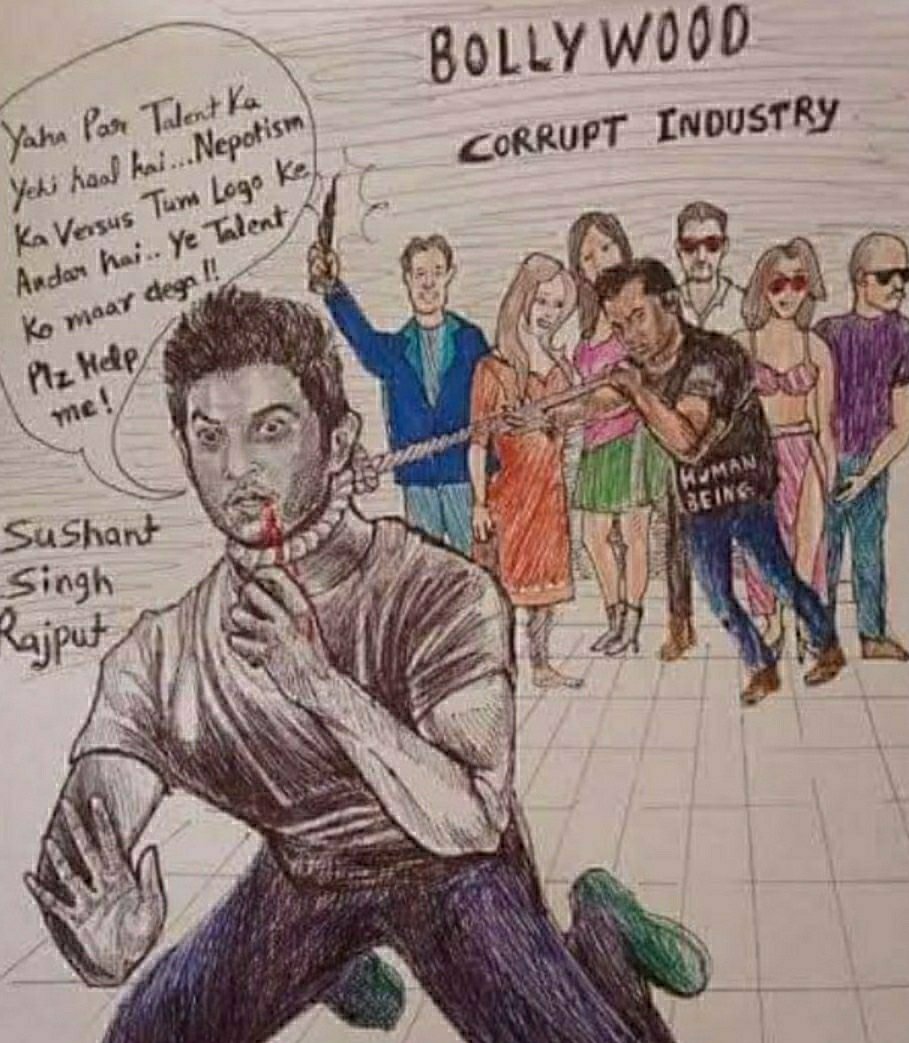 BOLLYWOOD
CORRUPT INDUSTRY
Yaha Par Talent Ka
Yehi haal hai...Nepotism
Ka Versus Tum Logo Ke
Andar hai.. Ye Talent
Ko maar dega!!
Plz Help
me!
Sushant
Singh
Rajput
HUMAN
BEING